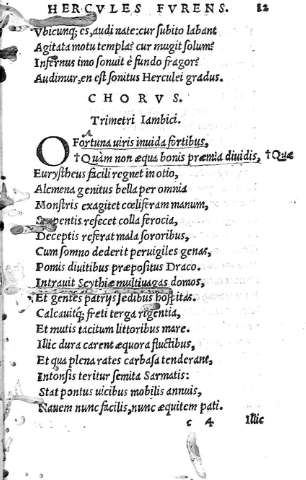 HERCVLES FVRENS. 82
Vbicunq; es, audi nate: cur subito labant
Agitata motu templa? cur mugit solum?
Infernus imo sonuit è fundo fragor?
Audimur, en est sonitus Herculei gradus.
CHORVS.
Trimetri Iambici.
A
O Fortuna uiris inuida fortibus,
†Quàm non æqua bonis præmia diuidis, †Quæ
Eurystheus facili regnet in otio,
Alcmena genitus bella per omnia
Monstris exagitet cœliferam manum,
Serpentis resecet colla ferocia,
Deceptis referat mala sororibus,
Cum somno dederit peruigiles genas,
Pomis diuitibus præpositus Draco.
Intrauit Scythiæ multiuagas domos,
Et gentes patrijs sedibus hospitas.
Calcauitq; freti terga rigentia,
Et mutis tacitum littoribus mare.
Illic dura carent æquora fluctibus,
Et qua plena rates carbasa tenderant,
Intonsis teritur semita Sarmatis:
Stat pontus uicibus mobilis annuis,
Nauem nunc facilis, nunc æquitem pati.
c 4 Illic